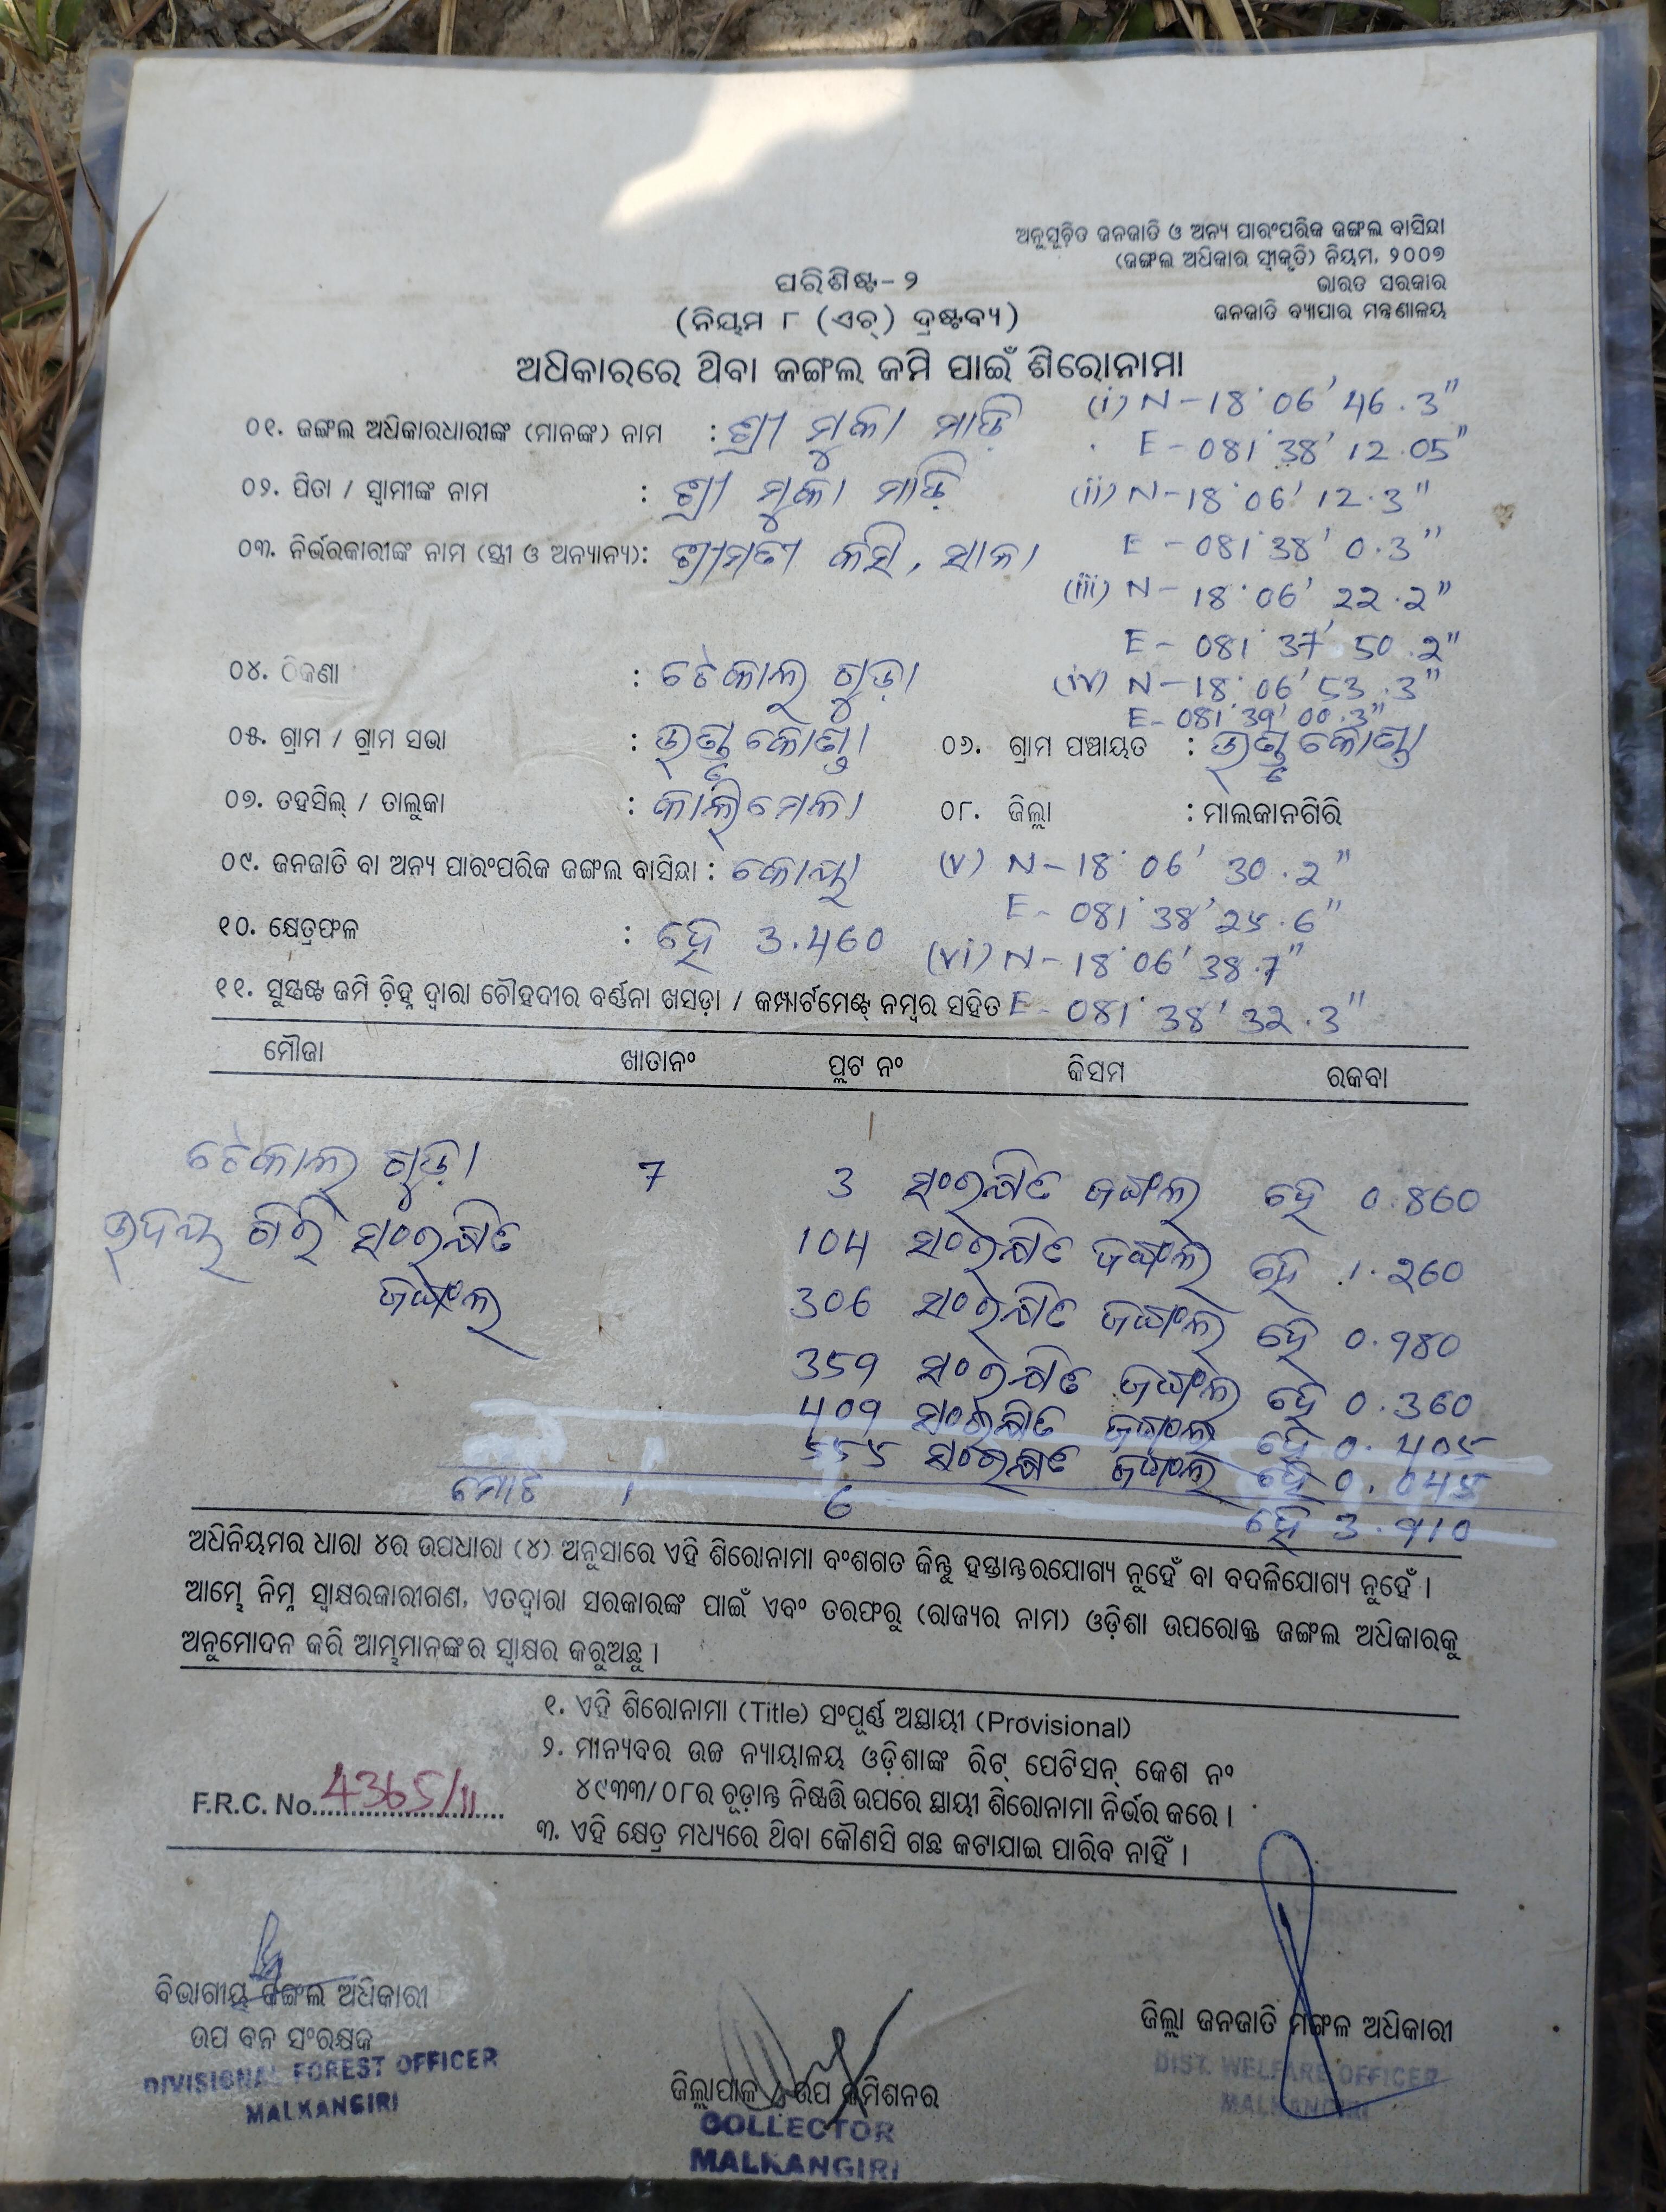 ଅନୁସୂଚିତ ଜନଜାତି ଓ ଅନ୍ୟ ପାରଂପରିକ ଜଙ୍ଗଲ ବାସିନ୍ଦା
(ଜଙ୍ଗଲ ଅଧିକାର ସ୍ୱୀକୃତି) ନିୟମ, ୨୦୦୭
ଭାରତ ସରକାର
ଜନଜାତି ବ୍ୟାପାର ମନ୍ତ୍ରଣାଳୟ
ପରିଶିଷ୍ଟ-୨
(ନିୟମ ୮ (ଏଚ୍) ଦ୍ରଷ୍ଟବ୍ୟ)
ଅଧିକାରରେ ଥିବା ଜଙ୍ଗଲ ଜମି ପାଇଁ ଶିରୋନାମା
୦୧. ଜଙ୍ଗଲ ଅଧିକାରଧାରୀଙ୍କ (ମାନଙ୍କ) ନାମ : ଶ୍ରୀ ମୁକା ମାଡ଼ି (i) N-18°06'46.3"
E-081°38'12.05"
୦୨. ପିତା / ସ୍ୱାମୀଙ୍କ ନାମ : ଶ୍ରୀ ମୁକା ମାଡ଼ି (ii) N-18°06'12.3"
୦୩. ନିର୍ଭରକାରୀଙ୍କ ନାମ (ସ୍ତ୍ରୀ ଓ ଅନ୍ୟାନ୍ୟ): ଶ୍ରୀମତୀ E-081°38'0.3"
(iii) N-18°06'22.2"
E-081°37'50.2"
୦୪. ଠିକଣା : ଟେକାଲ ଗୁଡ଼ା (iv) N-18°06'53.3"
E-081°39'00.3"
୦୫. ଗ୍ରାମ / ଗ୍ରାମ ସଭା : ୦୬. ଗ୍ରାମ ପଞ୍ଚାୟତ :
୦୭. ତହସିଲ୍ / ତାଲୁକା : କାଲିମେଳା ୦୮. ଜିଲ୍ଲା : ମାଲକାନଗିରି
୦୯. ଜନଜାତି ବା ଅନ୍ୟ ପାରଂପରିକ ଜଙ୍ଗଲ ବାସିନ୍ଦା : କୋୟା (v) N-18°06'30.2"
E-081°38'25.6"
୧୦. କ୍ଷେତ୍ରଫଳ : ହେ 3.460 (vi) N-18°06'38.7"
୧୧. ସୁସ୍ପଷ୍ଟ ଜମି ଚିହ୍ନ ଦ୍ୱାରା ଚୌହଦୀର ବର୍ଣ୍ଣନା ଖସଡ଼ା / କମ୍ପାର୍ଟମେଣ୍ଟ୍ ନମ୍ବର ସହିତ E-081°38'32.3"
ମୌଜା ଖାତାନଂ ପ୍ଲଟ ନଂ କିସମ ରକବା
ଟେକାଲ ଗୁଡ଼ା 7 3 ସଂରକ୍ଷିତ ଜଙ୍ଗଲ ହେ 0.860
ଉଦୟ ଗିରି ସଂରକ୍ଷିତ 104 ସଂରକ୍ଷିତ ଜଙ୍ଗଲ ହେ 1.260
ଜଙ୍ଗଲ 306 ସଂରକ୍ଷିତ ଜଙ୍ଗଲ ହେ 0.980
359 ସଂରକ୍ଷିତ ଜଙ୍ଗଲ ହେ 0.360
409 ସଂରକ୍ଷିତ ଜଙ୍ଗଲ ହେ 0.405
555 ସଂରକ୍ଷିତ ଜଙ୍ଗଲ ହେ 0.045
ମୋଟ 1 6 ହେ 3.910
ଅଧିନିୟମର ଧାରା ୪ର ଉପଧାରା (୪) ଅନୁସାରେ ଏହି ଶିରୋନାମା ବଂଶଗତ କିନ୍ତୁ ହସ୍ତାନ୍ତରଯୋଗ୍ୟ ନୁହେଁ ବା ବଦଳିଯୋଗ୍ୟ ନୁହେଁ ।
ଆମ୍ଭେ ନିମ୍ନ ସ୍ୱାକ୍ଷରକାରୀଗଣ, ଏତଦ୍ୱାରା ସରକାରଙ୍କ ପାଇଁ ଏବଂ ତରଫରୁ (ରାଜ୍ୟର ନାମ) ଓଡ଼ିଶା ଉପରୋକ୍ତ ଜଙ୍ଗଲ ଅଧିକାରକୁ
ଅନୁମୋଦନ କରି ଆମ୍ଭମାନଙ୍କର ସ୍ୱାକ୍ଷର କରୁଅଛୁ ।
୧. ଏହି ଶିରୋନାମା (Title) ସଂପୂର୍ଣ୍ଣ ଅସ୍ଥାୟୀ (Provisional)
୨. ମାନ୍ୟବର ଉଚ୍ଚ ନ୍ୟାୟାଳୟ ଓଡ଼ିଶାଙ୍କ ରିଟ୍ ପେଟିସନ୍ କେଶ ନଂ
୪୯୩୩/୦୮ର ଚୂଡ଼ାନ୍ତ ନିଷ୍ପତ୍ତି ଉପରେ ସ୍ଥାୟୀ ଶିରୋନାମା ନିର୍ଭର କରେ ।
F.R.C. No. 4365/11
୩. ଏହି କ୍ଷେତ୍ର ମଧ୍ୟରେ ଥିବା କୌଣସି ଗଛ କଟାଯାଇ ପାରିବ ନାହିଁ ।
ବିଭାଗୀୟ ଜଙ୍ଗଲ ଅଧିକାରୀ
ଉପ ବନ ସଂରକ୍ଷକ
DIVISIONAL FOREST OFFICER
MALKANGIRI
ଜିଲ୍ଲାପାଳ ଓ ଉପ କମିଶନର
COLLECTOR
MALKANGIRI
ଜିଲ୍ଲା ଜନଜାତି ମଙ୍ଗଳ ଅଧିକାରୀ
DIST. WELFARE OFFICER
MALKANGIRI